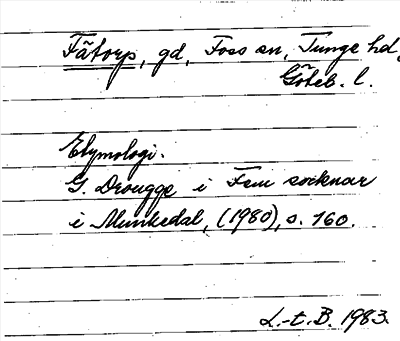 Fåtorp, gd, Foss sn, Tunge hd,
Göteb. l.
Etymologi.
G. Drougge i Fem socknar
i Munkedal, (1980), s. 160.
L.-t. B. 1983.